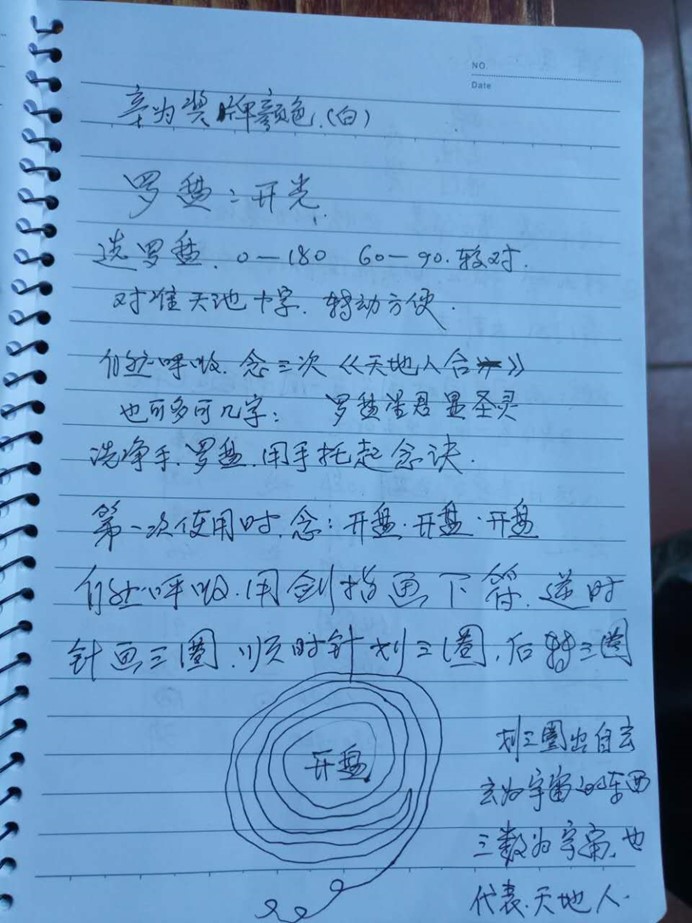 NO.
Date
辛为奖牌颜色.(白)
罗盘:开光.
选罗盘. 0—180 60—90.较对.
对准天地十字.转动方便.
自然呼吸.念三次《天地人合》
也可多可几字: 罗盘星君显圣灵
洗净手.罗盘.用手托起念诀.
第一次使用时.念:开盘.开盘.开盘
自然呼吸.用剑指画下符.逆时
针画三圈.顺时针划三圈.后转三圈
开盘
划三圈出自玄
玄为宇宙的东西
三数为宇宙.也
代表.天地人.